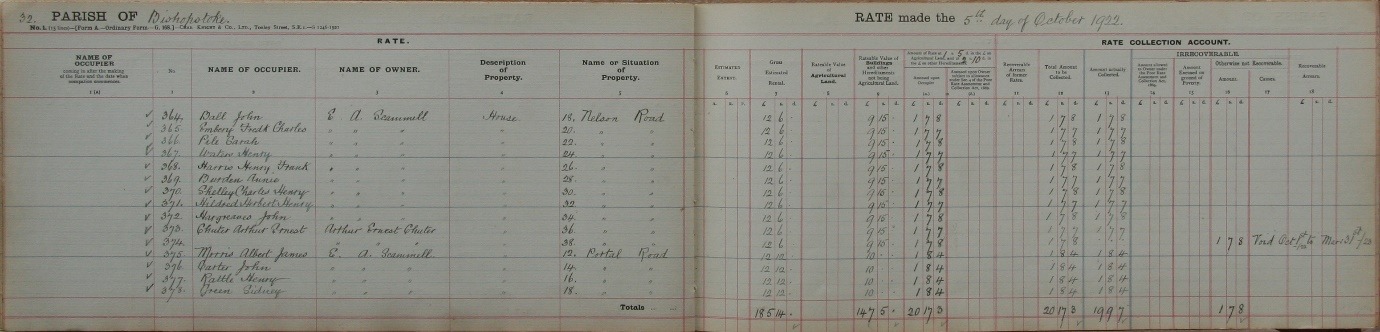 32. PARISH OF Bishopstoke. RATE made the 5th day of October 1922.
RATE. RATE COLLECTION ACCOUNT.
NAME OF OCCUPIER No. NAME OF OCCUPIER. NAME OF OWNER. Description of Property. Name or Situation of Property. ESTIMATED EXTENT. Gross Estimated Rental. Rateable Value of Agricultural Land. Rateable Value of Buildings and other Hereditaments not being Agricultural Land. Recoverable Arrear of former Rates. Total Amount to be Collected. Amount actually Collected. IRRECOVERABLE. Otherwise not Recoverable. Amount. Causes. Recoverable Arrears.
364. Dall John E. A. Scammell House 18. Nelson Road 12 6 9 15 1 7 8 1 7 8 1 7 8
365. Embery Fredk Charles " " " 20. " " 12 6 9 15 1 7 7 1 7 7 1 7 7
366. Pile Sarah " " " 22. " " 12 6 9 15 1 7 8 1 7 8 1 7 8
367. Water Henry " " " 24. " " 12 6 9 15 1 7 7 1 7 7 1 7 7
368. Harris Henry Frank " " " 26. " " 12 6 9 15 1 7 8 1 7 8 1 7 8
369. Burden Annie " " " 28. " " 12 6 9 15 1 7 7 1 7 7 1 7 7
370. Shelley Charles Henry " " " 30. " " 12 6 9 15 1 7 8 1 7 8 1 7 8
371. Hildred Herbert Henry " " " 32. " " 12 6 9 15 1 7 7 1 7 7 1 7 7
372. Hargreaves John " " " 34. " " 12 6 9 15 1 7 8 1 7 8 1 7 8
373. Chuter Arthur Ernest Arthur Ernest Chuter 36. " " 12 6 9 15 1 7 7 1 7 7 1 7 7
374. " " " 38. " " 12 6 9 15 1 7 8 1 7 8 1 7 8 Void Oct 1st to Mar 31st/23
375. Morris Albert James E. A. Scammell. 12. Portal Road 12 12 10 1 8 4 1 8 4 1 8 4
376. Carter John " " " 14. " " 12 12 10 1 8 4 1 8 4 1 8 4
377. Rattle Henry " " " 16. " " 12 12 10 1 8 4 1 8 4 1 8 4
378. Green Sidney " " " 18. " " 12 12 10 1 8 4 1 8 4 1 8 4
Totals 185 14 147 5 20 17 3 20 17 3 19 9 7 1 7 8